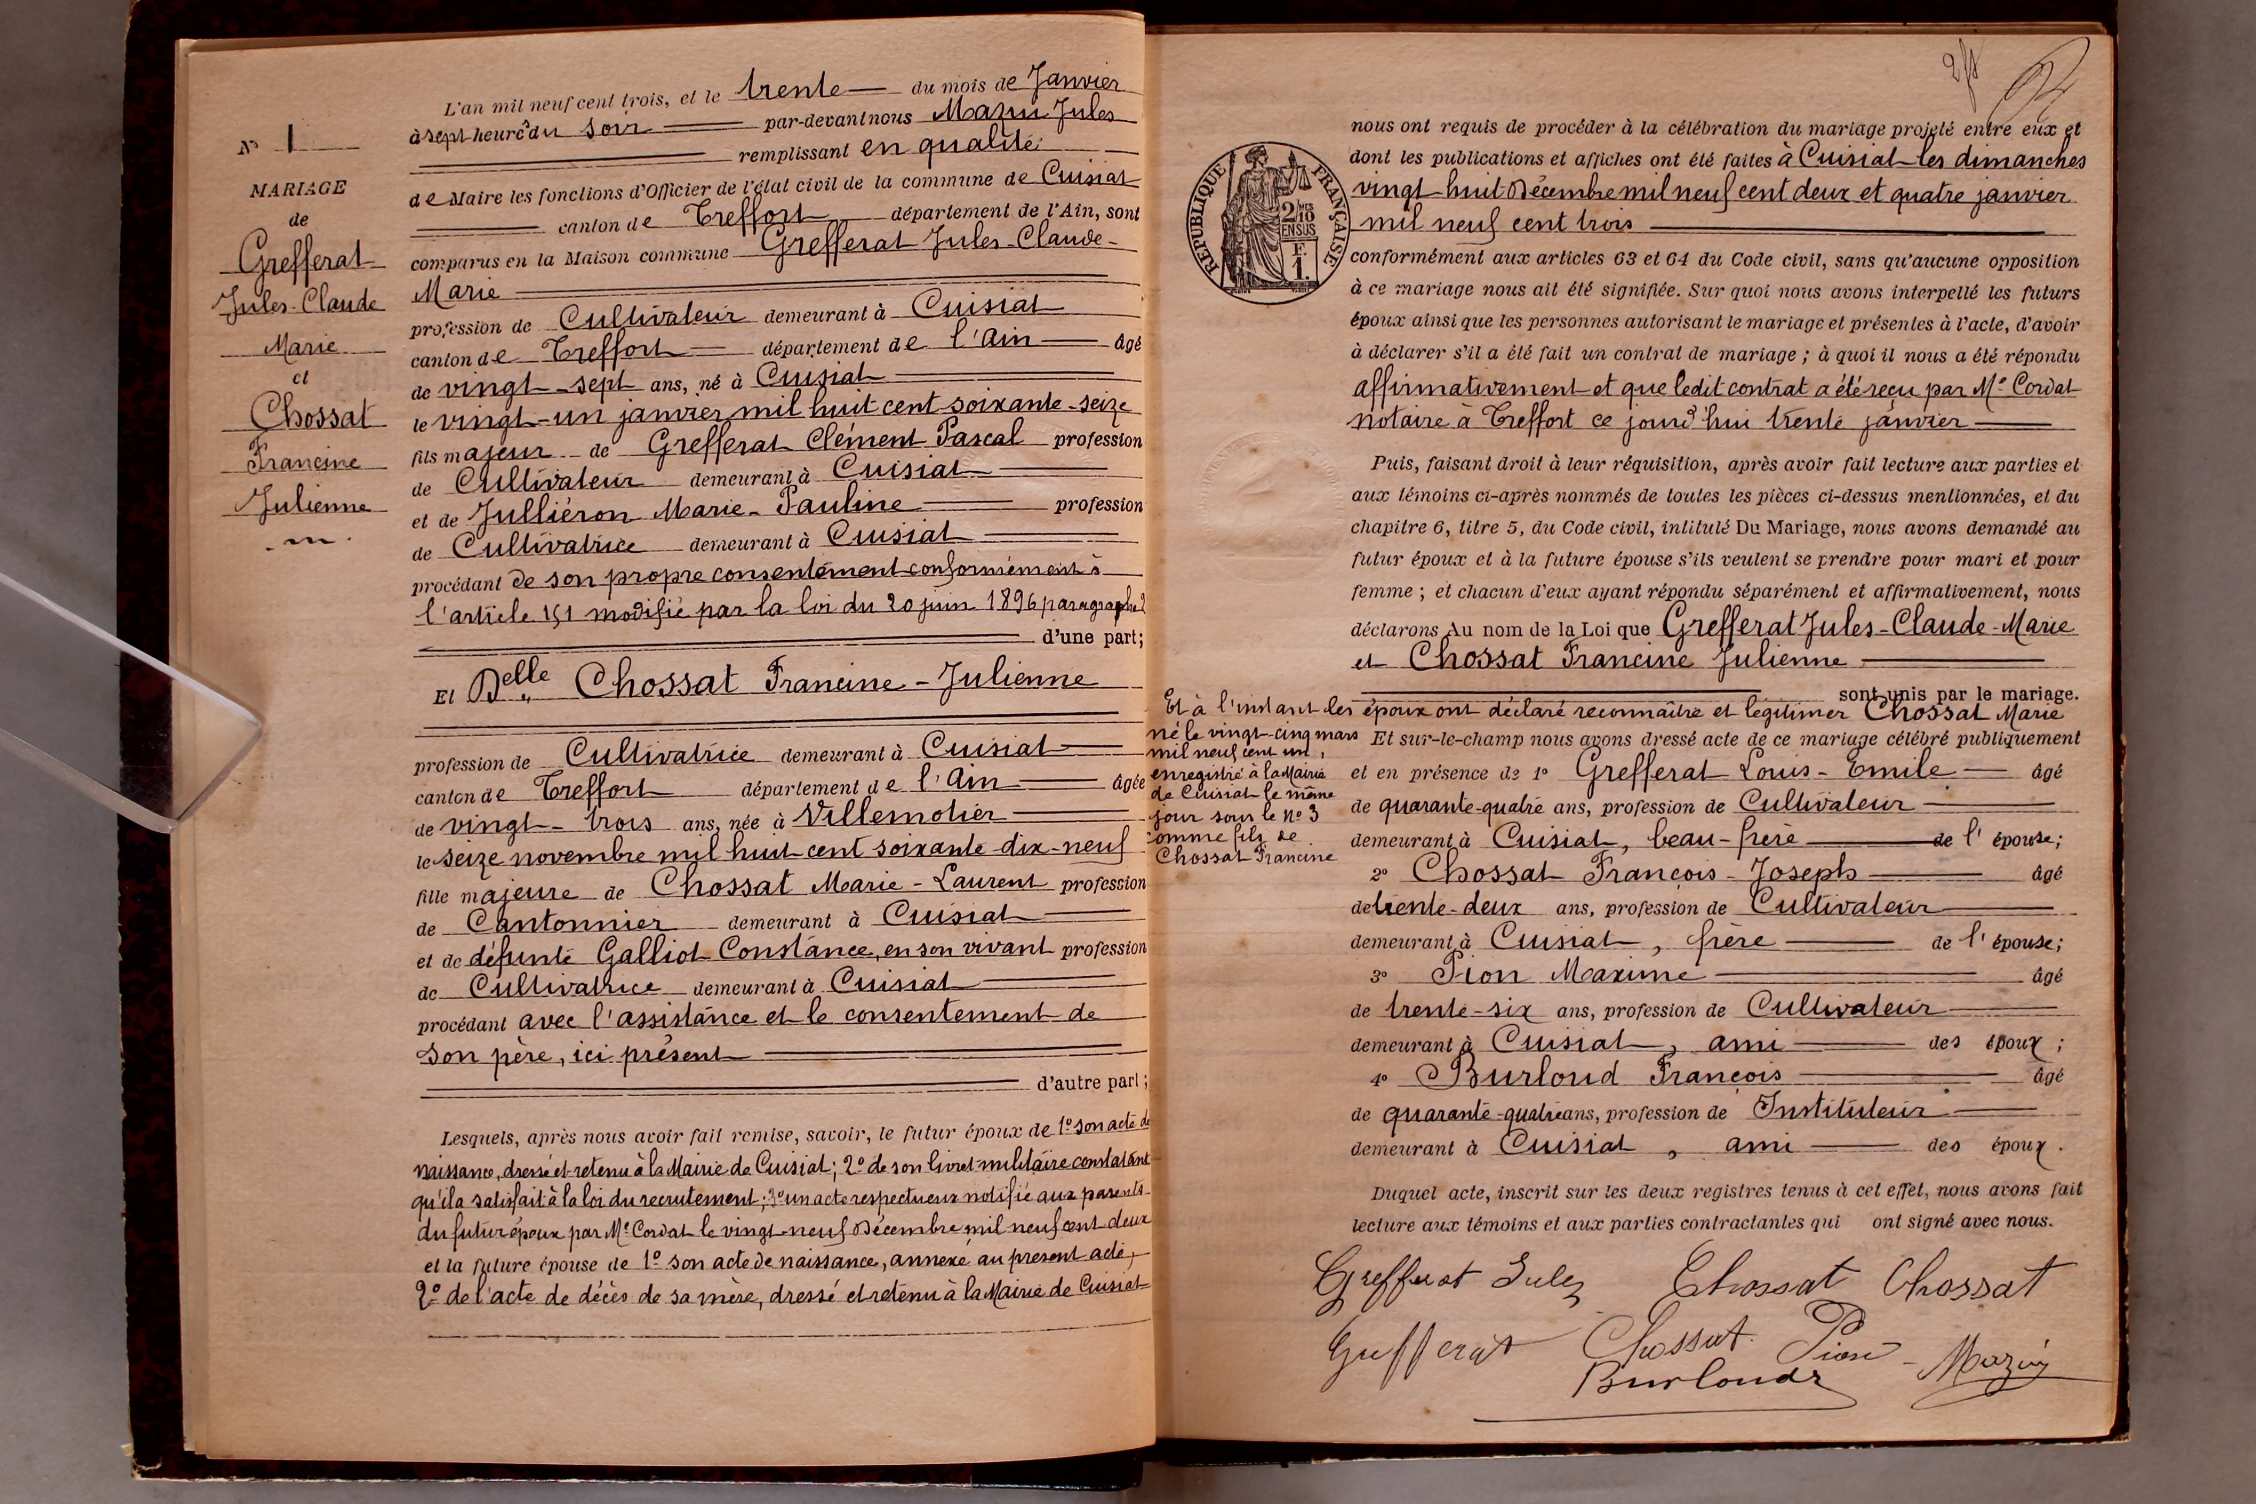 N° 1
MARIAGE
de
Grefferat
Jules-Claude
Marie
et
Chossat
Francine
Julienne
L'an mil neuf cent trois, et le trente du mois de Janvier
à sept heures du soir par-devant nous Mazuy Jules
remplissant en qualité
de Maire les fonctions d'Officier de l'état civil de la commune de Cuisiat
canton de Treffort département de l'Ain, sont
comparus en la Maison commune Grefferat Jules-Claude-
Marie
profession de Cultivateur demeurant à Cuisiat
canton de Treffort département de l'Ain âgé
de vingt-sept ans, né à Cuisiat
le vingt-un janvier mil huit cent soixante-seize
fils majeur de Grefferat Clément Pascal profession
de Cultivateur demeurant à Cuisiat
et de Julliéron Marie-Pauline profession
de Cultivatrice demeurant à Cuisiat
procédant de son propre consentement conformément à
l'article 151 modifié par la loi du 20 juin 1896 paragraphe 2
d'une part;
Et Delle Chossat Francine-Julienne
profession de Cultivatrice demeurant à Cuisiat
canton de Treffort département de l'Ain âgée
de vingt-trois ans, née à Villemotier
le seize novembre mil huit cent soixante-dix-neuf
fille majeure de Chossat Marie-Laurent profession
de Cantonnier demeurant à Cuisiat
et de défunte Galliot Constance, en son vivant profession
de Cultivatrice demeurant à Cuisiat
procédant avec l'assistance et le consentement de
son père, ici présent
d'autre part;
Lesquels, après nous avoir fait remise, savoir, le futur époux de 1° son acte de
naissance, dressé et retenu à la Mairie de Cuisiat; 2° de son livret militaire constatant
qu'il a satisfait à la loi du recrutement; 3° un acte respectueux notifié aux parents
du futur époux par Me Cordat le vingt-neuf Décembre mil neuf cent deux
et la future épouse de 1° son acte de naissance, annexé au présent acte,
2° de l'acte de décès de sa mère, dressé et retenu à la Mairie de Cuisiat
RÉPUBLIQUE FRANÇAISE
2/10mes
EN SUS
F.
1.
nous ont requis de procéder à la célébration du mariage projeté entre eux et
dont les publications et affiches ont été faites à Cuisiat les dimanches
vingt-huit Décembre mil neuf cent deux et quatre janvier
mil neuf cent trois
conformément aux articles 63 et 64 du Code civil, sans qu'aucune opposition
à ce mariage nous ait été signifiée. Sur quoi nous avons interpellé les futurs
époux ainsi que les personnes autorisant le mariage et présentes à l'acte, d'avoir
à déclarer s'il a été fait un contrat de mariage; à quoi il nous a été répondu
affirmativement et que ledit contrat a été reçu par Me Cordat
notaire à Treffort ce jourd'hui trente janvier
Puis, faisant droit à leur réquisition, après avoir fait lecture aux parties et
aux témoins ci-après nommés de toutes les pièces ci-dessus mentionnées, et du
chapitre 6, titre 5, du Code civil, intitulé Du Mariage, nous avons demandé au
futur époux et à la future épouse s'ils veulent se prendre pour mari et pour
femme; et chacun d'eux ayant répondu séparément et affirmativement, nous
déclarons Au nom de la Loi que Grefferat Jules-Claude-Marie
et Chossat Francine Julienne
sont unis par le mariage.
Et à l'instant les époux ont déclaré reconnaître et légitimer Chossat Marie
né le vingt-cinq mars
mil neuf cent un,
enregistré à la Mairie
de Cuisiat le même
jour sous le N° 3
comme fils de
Chossat Francine
Et sur-le-champ nous avons dressé acte de ce mariage célébré publiquement
et en présence de 1° Grefferat Louis-Emile âgé
de quarante-quatre ans, profession de Cultivateur
demeurant à Cuisiat, beau-frère de l'épouse;
2° Chossat François-Joseph âgé
de trente-deux ans, profession de Cultivateur
demeurant à Cuisiat, frère de l'épouse;
3° Pion Maxime âgé
de trente-six ans, profession de Cultivateur
demeurant à Cuisiat, ami des époux;
4° Burloud François âgé
de quarante-quatre ans, profession de Instituteur
demeurant à Cuisiat, ami des époux.
Duquel acte, inscrit sur les deux registres tenus à cet effet, nous avons fait
lecture aux témoins et aux parties contractantes qui ont signé avec nous.
Grefferat Jules Chossat Chossat
Grefferat Chossat Pion Mazuy
Burloud